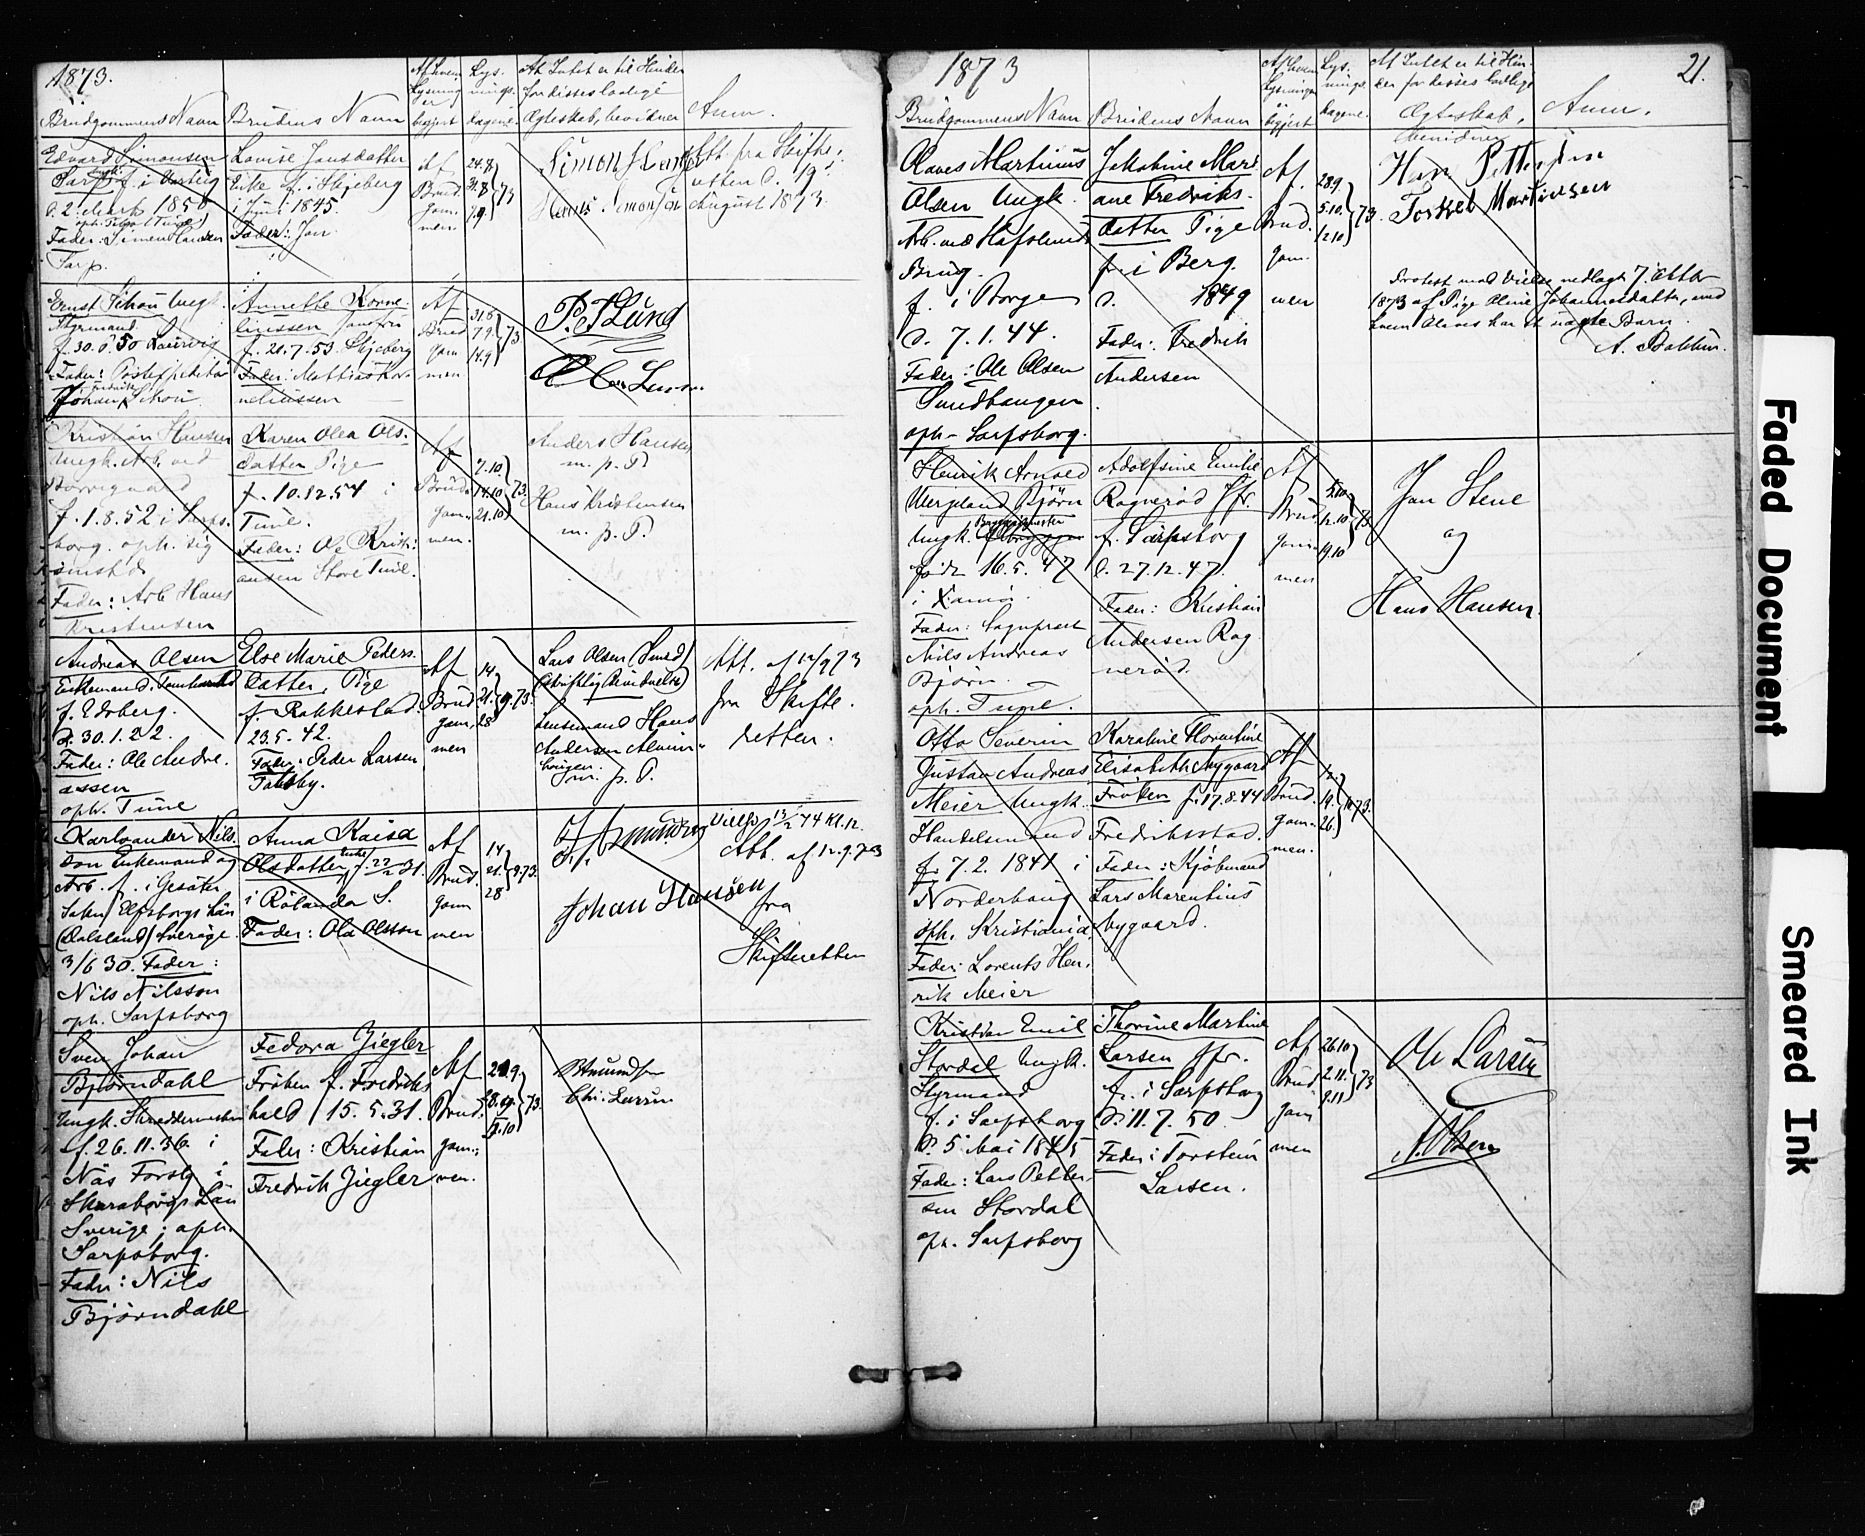 1873.
Brudgommens Navn
Brudens Navn
Af hvem
Lysning
er
begjert
Lys-
nings-
dagene
At Intet er til Hinder
for disses lovlige
Ægteskab, bevidner
Anm.
Edvard Simonsen
f. i Varteig
d. 2. Marts 1850
Fader: Simen Hansen
Tarp.
Lovise Jansdatter
Enke f. i Skjeberg
i Juni 1845.
Fader: Jan
Af
Brud
gom-
men
24.8
31.8
7.9
73
Simon Hansen
Hans Simonsen
Att. fra Skifte-
retten d. 19.
August 1873.
Ernst Schou Ungk.
Styrmand
f. 30.6.50 Laurvig
Fader: Postexpeditør
Johan Fredrik Schou
Annette Korne-
liussen
f. 21.7.53. Skjeberg
Fader: Mathias Kor-
neliussen
Af
Brud
gom
men
31.8
7.9
14.9
73
P. T. Lund
Kristian Hansen
Ungk. Arb. ved
Borregaard
f. 1.8.52 i Sarps-
borg. oph. sig
smstd.
Fader: Arb. Hans
Kristensen
Karen Olea Ols-
datter Pige
f. 10.12.54 i
Tune.
Fader: Ole Kristi-
ansen Store Tune.
Af
Brud-
gom-
men.
7.10
14.10
21.10
73.
Anders Hansen
m. p. P.
Hans Kristensen
m. p. P.
Andreas Olsen
Enkemand, Tømmermand
f. Edsberg.
d. 30.1.22.
Fader: Ole Andre-
assen
oph. Tune
Else Marie Peders-
datter, Pige
f. Rakkestad
23.5.42.
Fader: Peder Larsen
Taksby.
Af
Brud
gom,
men
14.
21.
28
9.73.
Lars Olsen (Smed)
(skriftlig Bevidnelse)
Lensmand Hans
Andersen Alvim-
haugen.
m. p. P.
Att. af 12/9 73
fra Skifte-
retten.
Karl Nils-
son Enkemand og
Arb. f. i Gesäter
Sokn Elfsborgs Län
(Dalsland) Sverige
3/6 30. Fader:
Nils Nilsson
oph. Sarpsborg
Anna Kaisa
Olsdatter Enke f. 22/2 31.
i Rölanda S.
Fader: Ola Olsson
Af
Brud.
gom
men
14
21.
28
9.73.
Johan Hansen
Viet 13/2 74 Kl. 12.
Att. af 12.9.73
fra
Skifteretten
Sven Johan
Bjørndahl
Ungk. Skreddermester
f. 26.11.36. i
Näs Forsby i
Skaraborgs Län
Sverige; oph.
Sarpsborg.
Fader: Nils
Bjørndahl
Fedora Ziegler
Frøken f. Fredriks
hald 15.5.31.
Fader: Kristian
Fredrik Ziegler
Af
Brud.
gom-
men.
21.9
28.9
5.10
73.
B Amundsen
Chr. Larsen
1873
21.
Brudgommens Navn
Brudens Navn
Af hvem
Lysningen
begjert
Lys-
nings-
dagene.
At Intet er til Hin-
der for disses lovlige
Ægteskab,
bevidner
Anm.
Olaves Martinius
Olsen Ungk.
Arb. ved Hafslunds
Brug.
f. i Borge
d. 7.1.44.
Fader: Ole Olsen
Sundhaugen
oph. Sarpsborg.
Jakobine Mari-
ane Fredriks-
datter Pige
f. i Berg.
d. 1849
Fader: Fredrik
Andersen
Af.
Brud.
gom.
men
28.9.
5.10.
12.10
73.
Hans Pettersen
Torkel Martinsen
Protest mod Vielse nedlagt 7. Oktbr
1873 af Pige Oline Johannesdatter, med
hvem Olaves har et uægte Barn.
A. Bakken.
Henrik Arnold
Wergeland Bjørn
Ungk. Baggagemester
født 16.5.47
i Vannø.
Fader: Sognepræst
Nils Andreas
Bjørn.
oph. Tune.
Adolfine Emilie
Ragnerød Jfr.
f. Sarpsborg
d. 27.12.47.
Fader: Kristian
Andersen Rag-
nerød.
Af
Brud
gom-
men
5.10
12.10
19.10
73
Jan Stene
og
Hans Hansen.
Otto Severin
Gustav Andreas
Meier Ungk.
Handelsmand
f. 7.2.1841 i
Norderhaug
oph. Kristiania.
Fader: Lorents Hen-
rik Meier
Karoline Florentine
Elisabeth Nygaard
Frøken f. 17.8.44
Fredriksstad.
Fader: Kjøbmand
Lars Marentius
Nygaard.
Af
Brud.
gom-
men.
12.
19.
26.
10.73.
Kristian Emil
Stordal Ungk.
Styrmand
f. i Sarpsborg
d. 5 Mai 1845
Fader: Lars Petter-
sen Stordal
oph. Sarpsborg
Thorine Martine
Larsen Jfr.
f. i Sarpsborg
d. 11.7.50.
Fader: Torstein
Larsen.
Af
Brud
gom
men
26.10
2.11.
9.11
73
Ole Larsen
A. Olsen
Faded Document
Smeared Ink